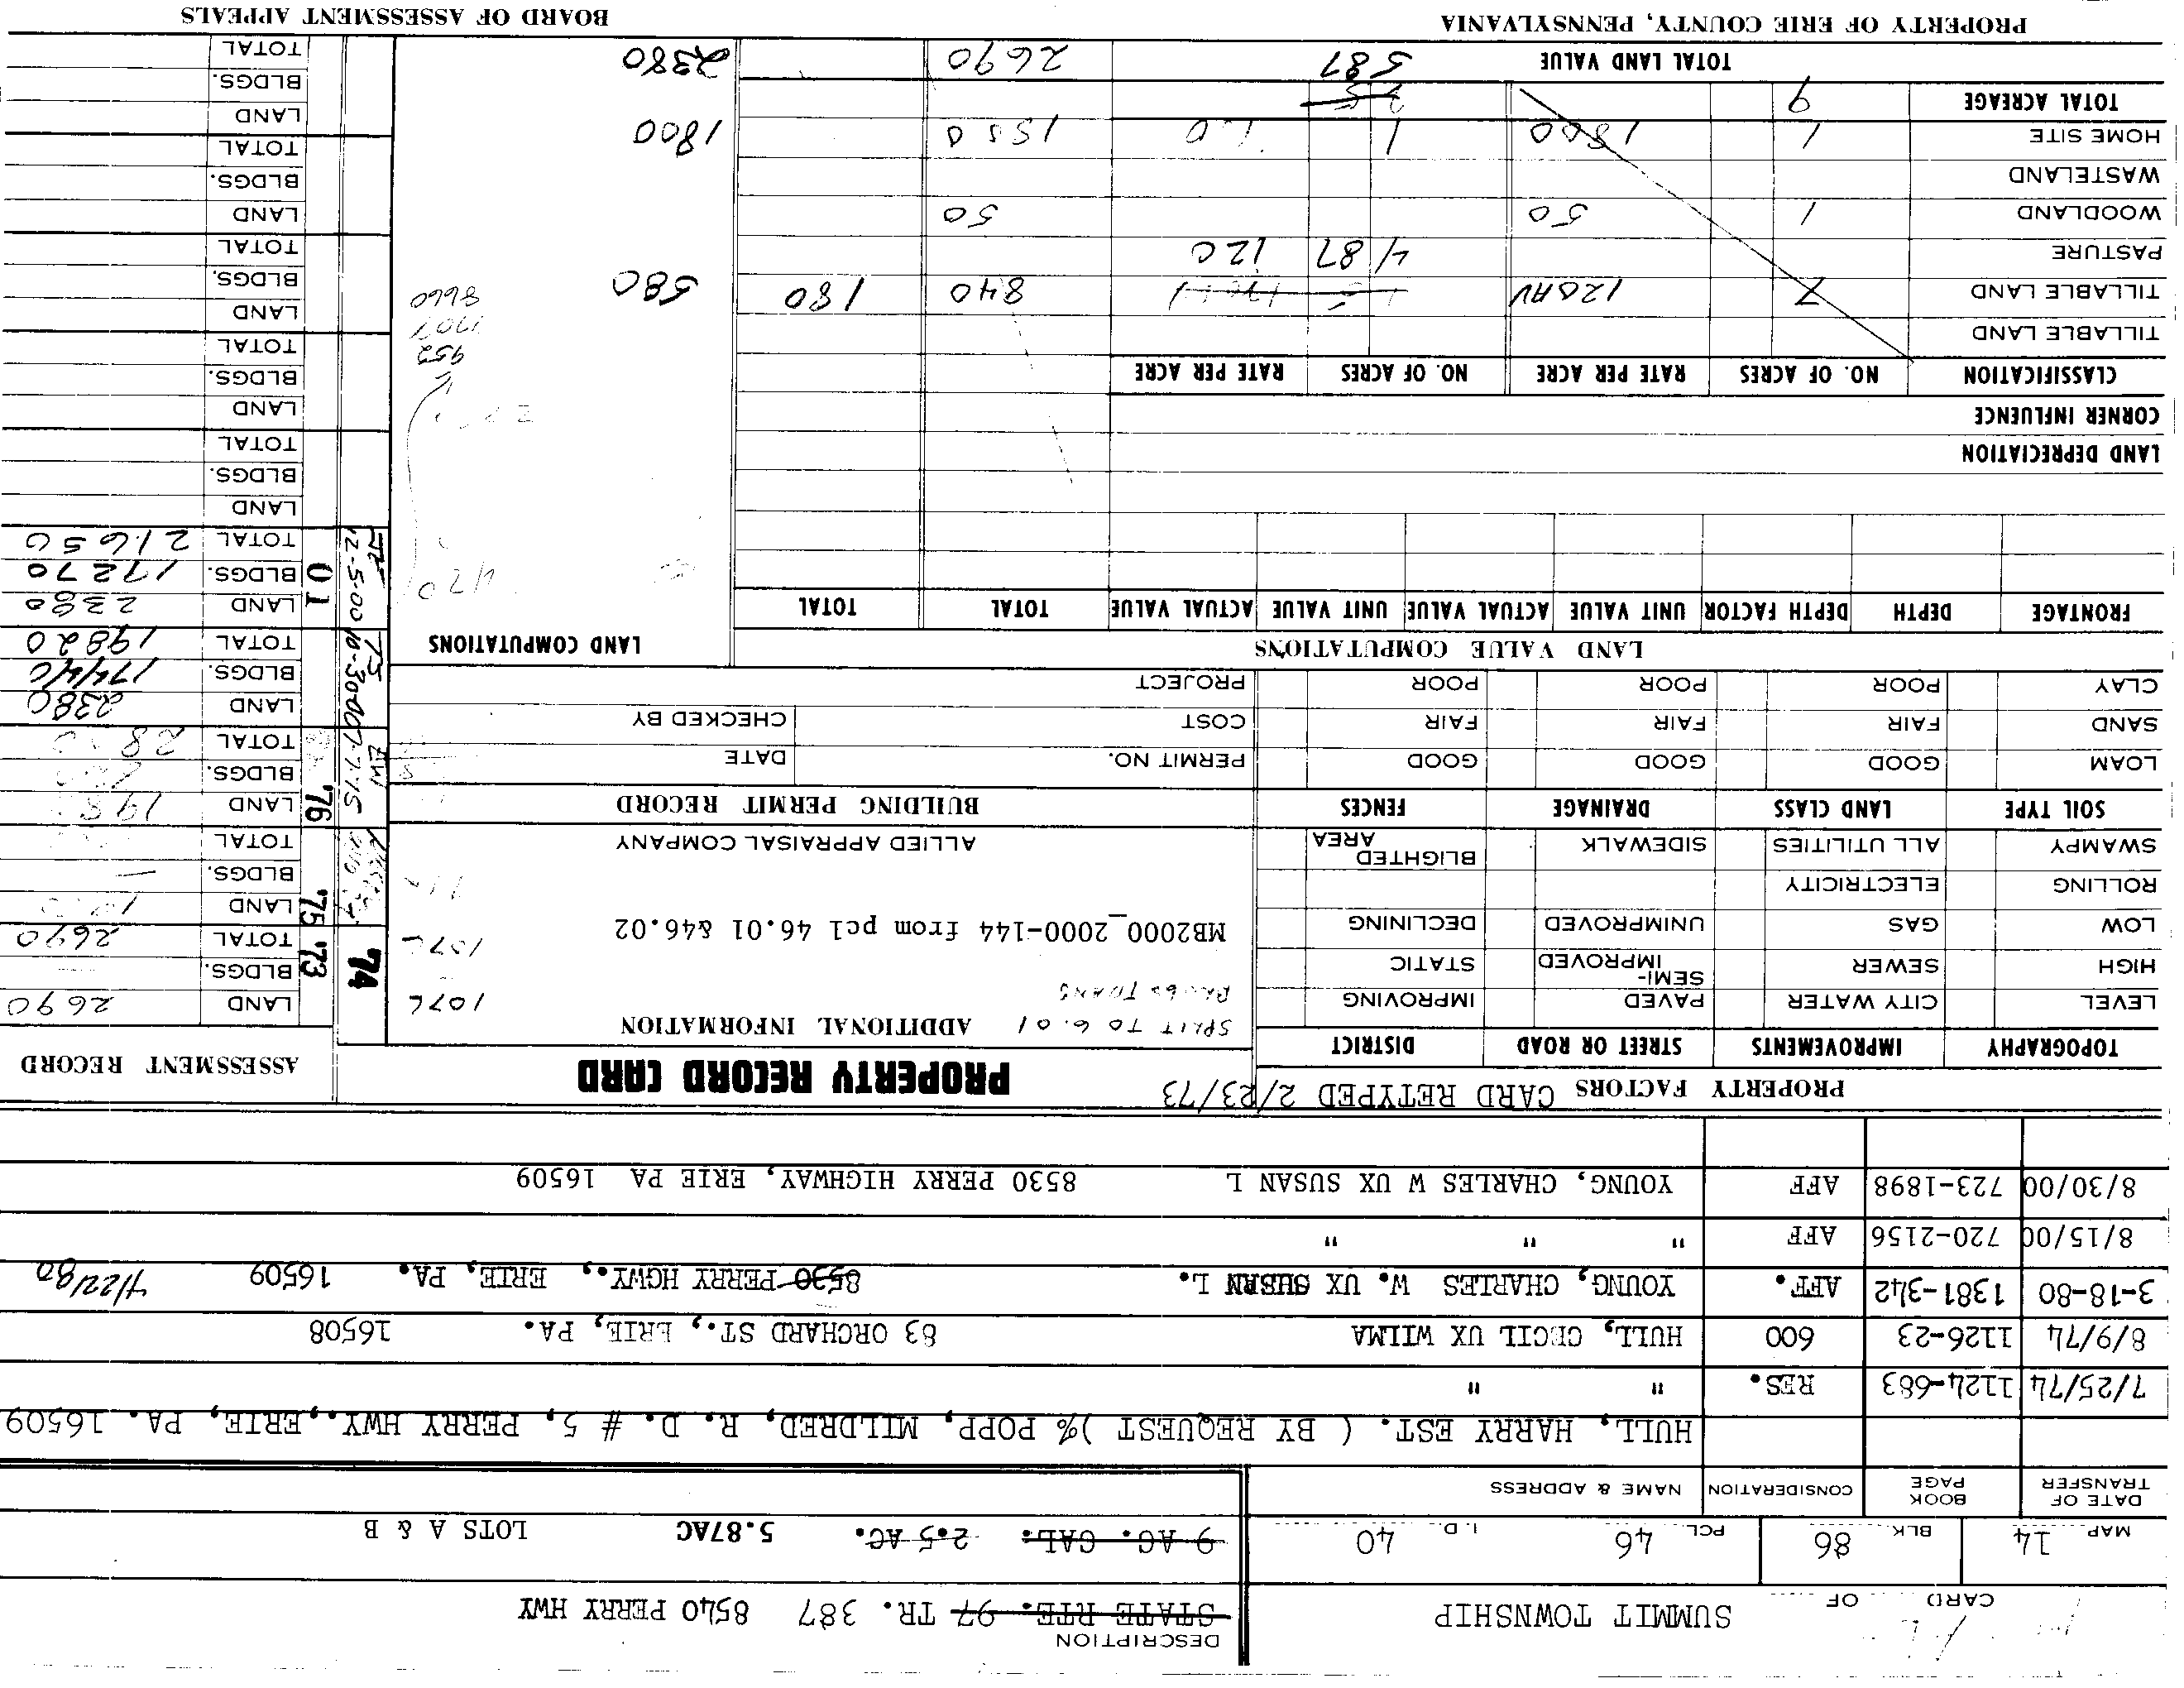 DESCRIPTION
CARD OF
SUMMIT TOWNSHIP
STATE RTE. 97 TR. 387 8540 PERRY HWY
MAP 14 BLK. 86 PCL. 46 I.D. 40
9 AC. CAL. 2.5 AC. 5.87AC LOTS A & B
DATE OF TRANSFER BOOK PAGE CONSIDERATION NAME & ADDRESS
HULL, HARRY EST. ( BY REQUEST )% POPP, MILDRED, R. D. # 5, PERRY HWY., ERIE, PA. 16509
7/25/74 1124-683 RES. " "
8/9/74 1126-23 600 HULL, CECIL UX WILMA 83 ORCHARD ST., ERIE, PA. 16508
3-18-80 1381-342 AFF. YOUNG, CHARLES W. UX SUSAN L. 8530 PERRY HGWY., ERIE, PA. 16509 4/22/80
8/15/00 720-2156 AFF " " "
8/30/00 723-1898 AFF YOUNG, CHARLES W UX SUSAN L 8530 PERRY HIGHWAY, ERIE PA 16509
PROPERTY FACTORS CARD RETYPED 2/23/73
PROPERTY RECORD CARD
ASSESSMENT RECORD
TOPOGRAPHY IMPROVEMENTS STREET OR ROAD DISTRICT
SPLIT TO 6.01 ADDITIONAL INFORMATION
LEVEL CITY WATER PAVED IMPROVING
HIGH SEWER SEMI-IMPROVED STATIC
LOW GAS UNIMPROVED DECLINING
ROLLING ELECTRICITY
SWAMPY ALL UTILITIES SIDEWALK BLIGHTED AREA
MB2000 2000-144 from pcl 46.01 &46.02
ALLIED APPRAISAL COMPANY
SOIL TYPE LAND CLASS DRAINAGE FENCES
LOAM GOOD GOOD GOOD
SAND FAIR FAIR FAIR
CLAY POOR POOR POOR
BUILDING PERMIT RECORD
PERMIT NO. DATE
COST CHECKED BY
PROJECT
'74
'73 LAND 2690
BLDGS.
TOTAL 2690
'75 LAND
BLDGS. —
TOTAL
'76 LAND
BLDGS.
TOTAL
7-7-75 EW
LAND 2380
BLDGS. 17440
TOTAL 19820
10-30-00
01 LAND 2380
BLDGS. 19270
TOTAL 21650
12-5-00
LAND
BLDGS.
TOTAL
LAND
BLDGS.
TOTAL
LAND
BLDGS.
TOTAL
LAND
BLDGS.
TOTAL
LAND
BLDGS.
TOTAL
LAND VALUE COMPUTATIONS
LAND COMPUTATIONS
FRONTAGE DEPTH DEPTH FACTOR UNIT VALUE ACTUAL VALUE UNIT VALUE ACTUAL VALUE TOTAL TOTAL
LAND DEPRECIATION
CORNER INFLUENCE
CLASSIFICATION NO. OF ACRES RATE PER ACRE NO. OF ACRES RATE PER ACRE
952
8660
TILLABLE LAND
TILLABLE LAND 7 120AV 840 180 580
PASTURE 4 87 120
WOODLAND 1 50 50
WASTELAND
HOME SITE 1 1800 1 1800
TOTAL ACREAGE 9
TOTAL LAND VALUE 587 2690 2380
PROPERTY OF ERIE COUNTY, PENNSYLVANIA
BOARD OF ASSESSMENT APPEALS